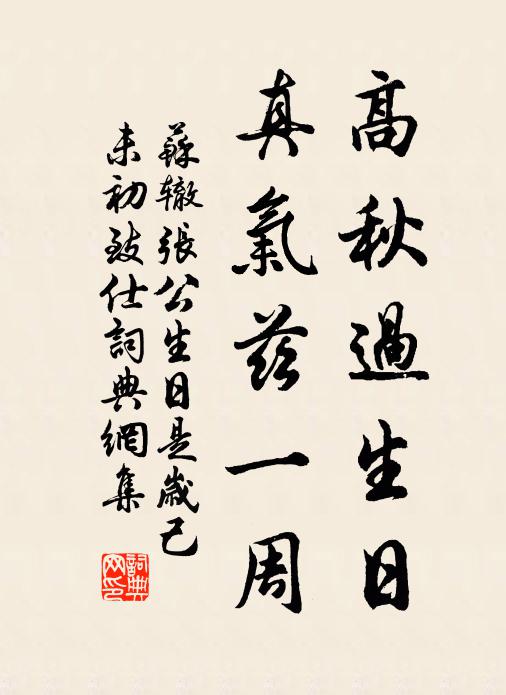 高秋過生日
真氣茲一周
蘇辙張公生日是歲已
未初致仕詞典網集
詞典
网印